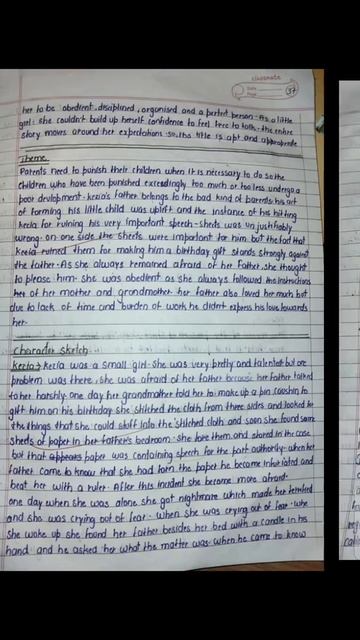 classmate
Date
Page
37
her to be obedient, disciplined, organised and a perfect person. As a little
girl, she couldn't build up herself confidence to feel free to talk. the entire
story moves around her expectations. so, the title is apt and appropriate
Theme
Parents need to punish their children when it is necessary to do so. the
children who have been punished exceedingly too much or too less undergo a
poor devlopment. kezia's father belongs to the bad kind of parents. his act
of forming his little child was uplift and the instance of his hitting
kezia for ruining his very important speech-sheets was unjustifiably
wrong. on one side the sheets were important for him but the fact that
kezia ruined them for making him a birthday gift stands strongly against
the father. As she always remained afraid of her father, she thought
to please him. she was obedient as she always followed the instructions
of her mother and grandmother. her father also loved her much but
due to lack of time and burden of work he didn't express his love towards
her.
character sketch
kezia → kezia was a small girl. she was very pretty and talented but one
problem was there, she was afraid of her father because her father talked
to her harshly. one day her grandmother told her to make up a pin cushion to
gift him on his birthday. she stitched the cloth from three sides and looked for
the things that she could stuff into the stitched cloth and soon she found some
sheets of paper in her father's bedroom. she tore them and stored in the case
but that paper was containing speech for the port authority. when her
father came to know that she had torn the paper he became infuriated and
beat her with a ruler. After this incident she became more afraid.
one day when she was alone she got nightmare which made her terrified
and she was crying out of fear. when she was crying out of fear. whe
she woke up she found her father besides her bed with a candle in his
hand and he asked her what the matter was. when he came to know